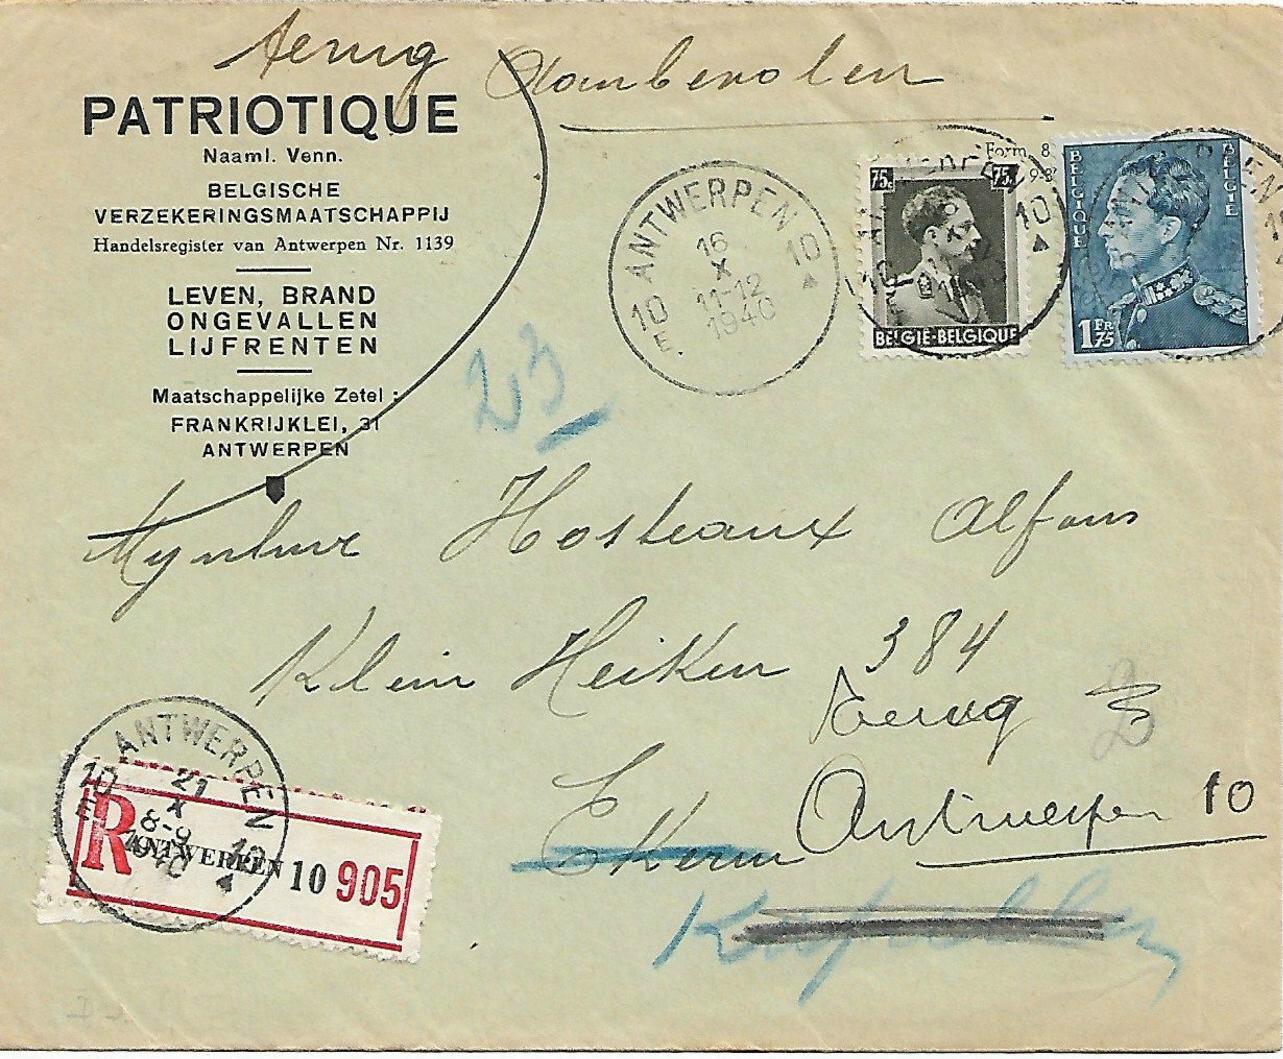 Terug Aanbevolen
PATRIOTIQUE
Naaml. Venn.
BELGISCHE
VERZEKERINGSMAATSCHAPPIJ
Handelsregister van Antwerpen Nr. 1139
LEVEN, BRAND
ONGEVALLEN
LIJFRENTEN
Maatschappelijke Zetel :
FRANKRIJKLEI, 31
ANTWERPEN
Form. 8
ANTWERPEN
16
X
11-12
1940
10 10
E.
75c 75c
BELGIE-BELGIQUE
BELGIQUE BELGIE
1 FR 75
23
Mynheer Hosteaux Alfons
Klein Heiken 384
Terug
Ekeren
Antwerpen 10
ANTWERPEN
21
X
8-9
1940
10 10
E
R ANTWERPEN 10 905